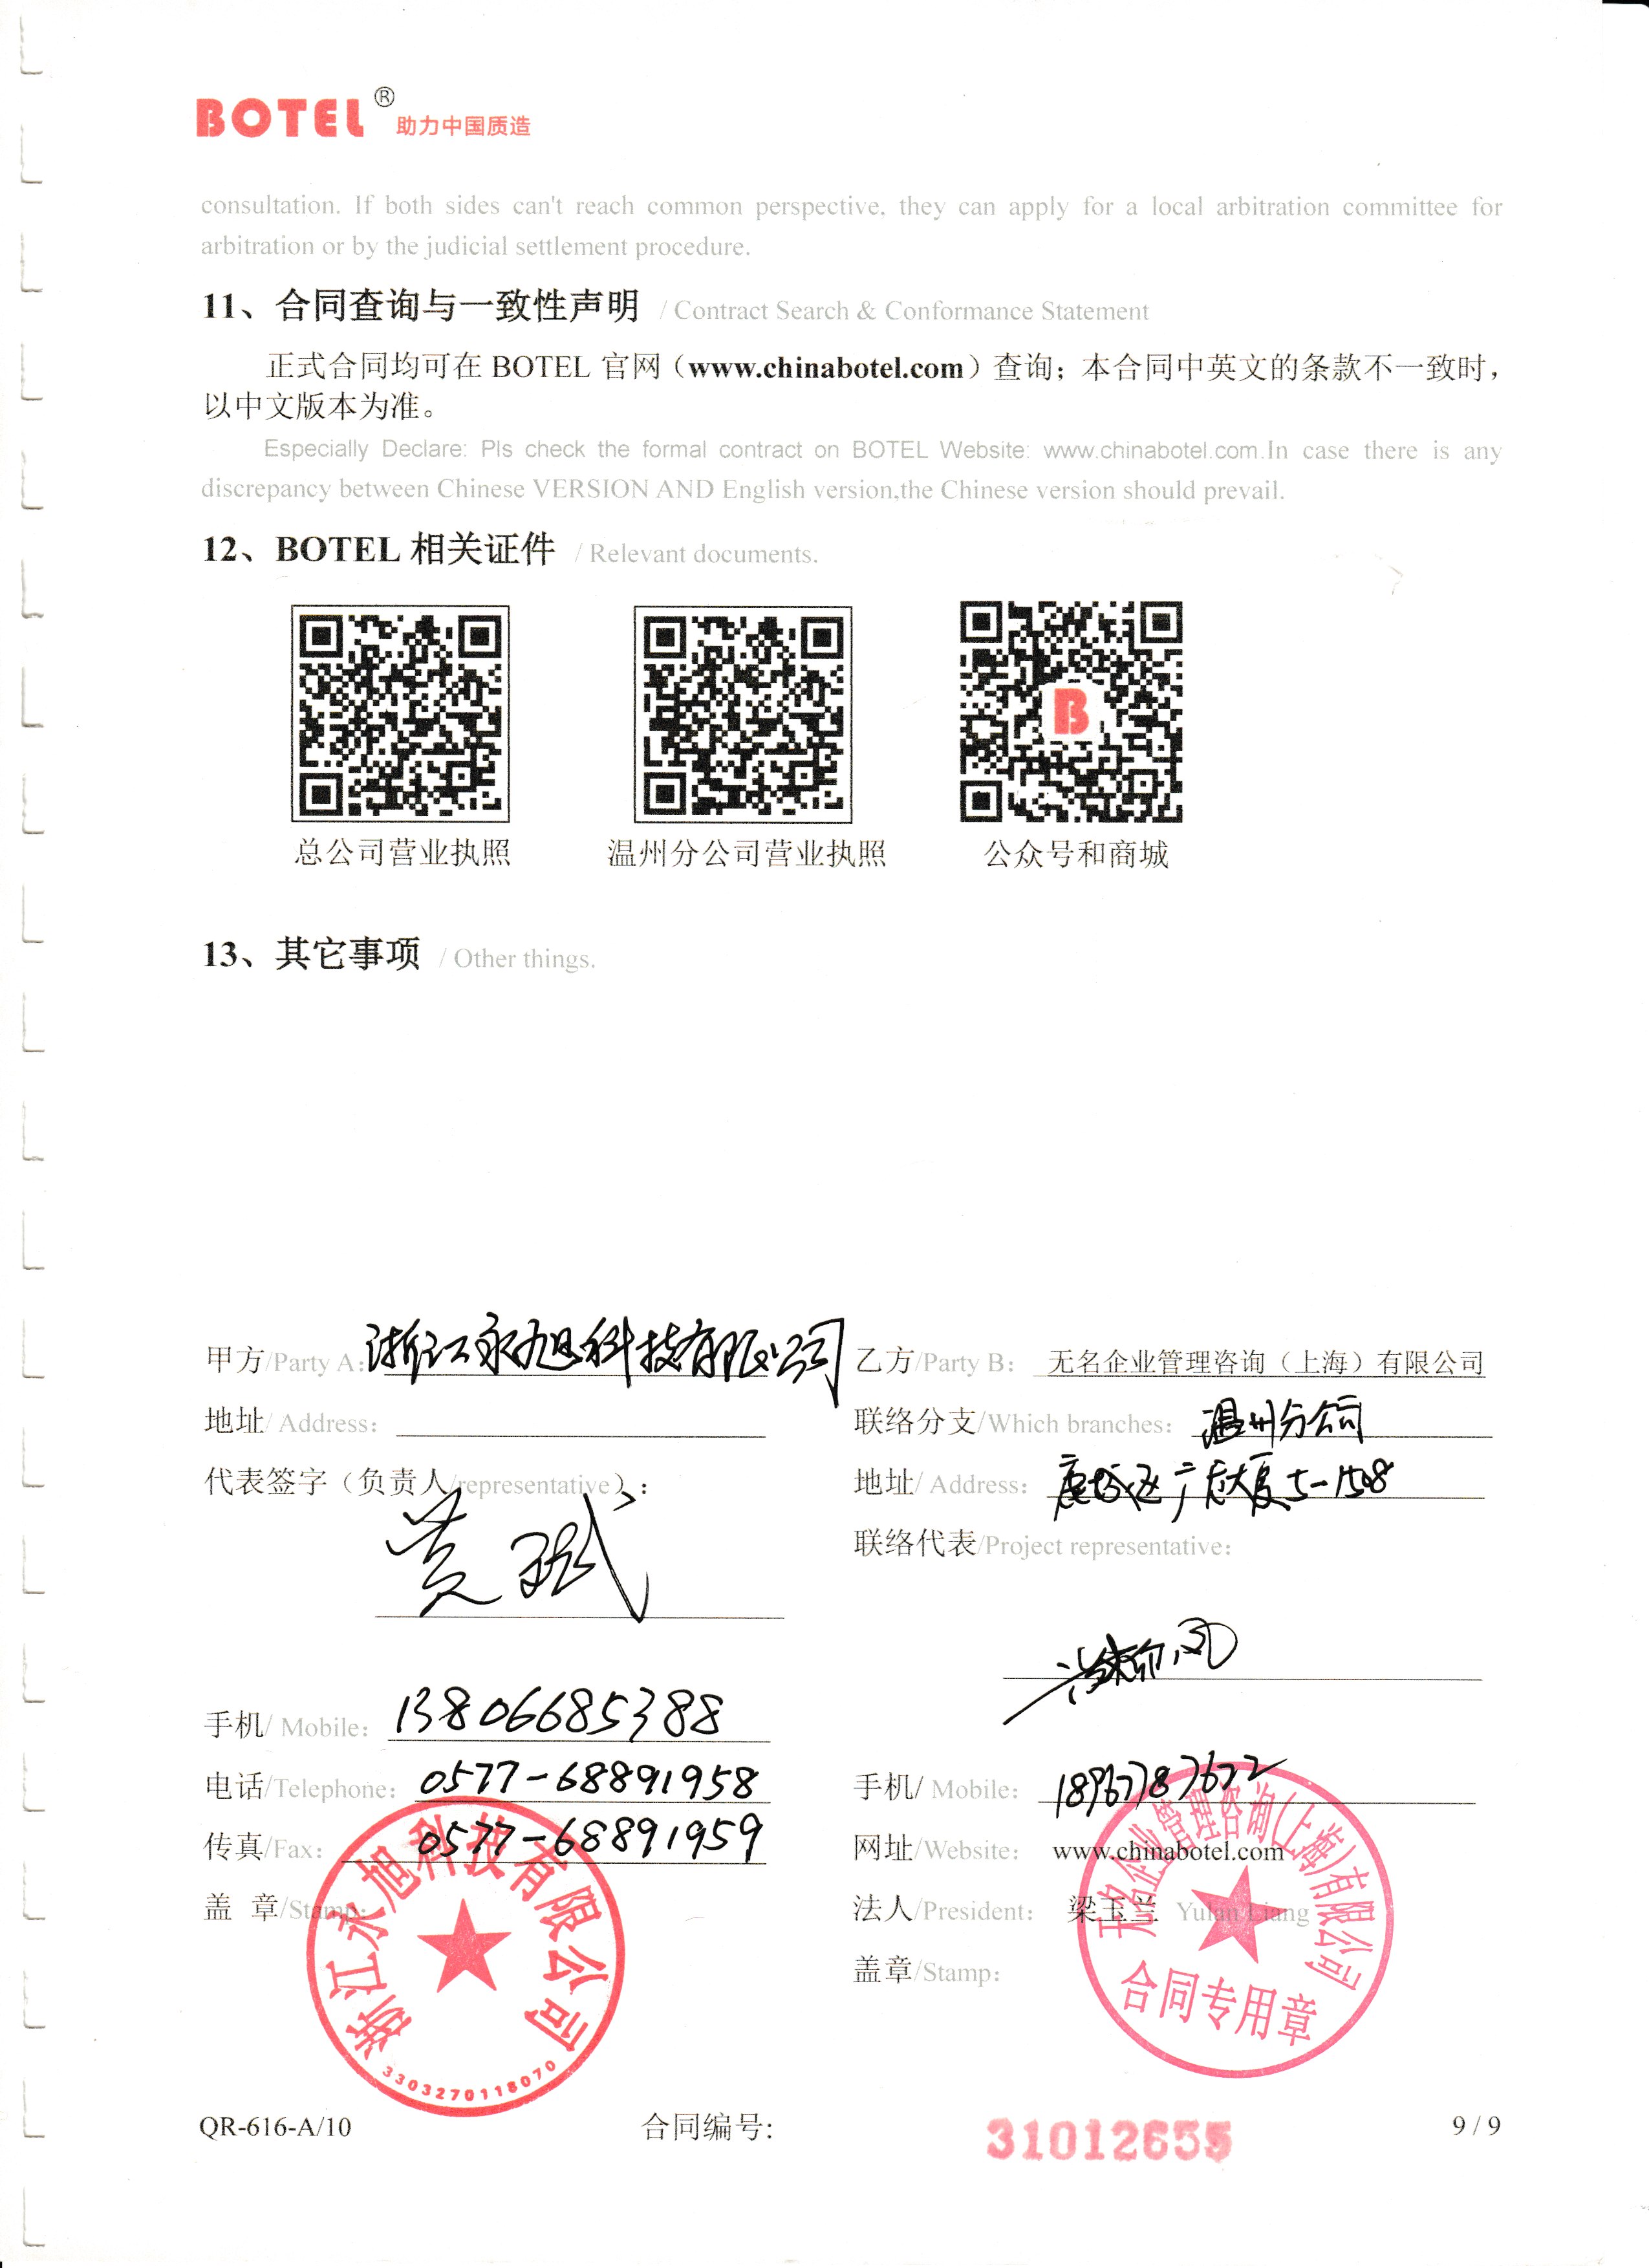 BOTEL® 助力中国质造
consultation. If both sides can't reach common perspective, they can apply for a local arbitration committee for
arbitration or by the judicial settlement procedure.
11、合同查询与一致性声明 / Contract Search & Conformance Statement
正式合同均可在 BOTEL 官网（www.chinabotel.com）查询；本合同中英文的条款不一致时，
以中文版本为准。
Especially Declare: Pls check the formal contract on BOTEL Website: www.chinabotel.com.In case there is any
discrepancy between Chinese VERSION AND English version,the Chinese version should prevail.
12、BOTEL 相关证件 / Relevant documents.
B
总公司营业执照 温州分公司营业执照 公众号和商城
13、其它事项 / Other things.
甲方/Party A: 浙江永旭科技有限公司
地址/ Address:
代表签字（负责人/representative）:
手机/ Mobile: 13806685388
电话/Telephone: 0577-68891958
传真/Fax: 0577-68891959
盖 章/Stamp:
浙江永旭科技有限公司
3303270118070
乙方/Party B: 无名企业管理咨询（上海）有限公司
联络分支/Which branches: 温州分公司
地址/ Address: 鹿城区广 大厦 5-1508
联络代表/Project representative:
手机/ Mobile: 18967787622
网址/Website: www.chinabotel.com
法人/President: 梁玉兰 Yulan Liang
盖章/Stamp:
无名企业管理咨询(上海)有限公司
合同专用章
QR-616-A/10 合同编号: 31012655 9 / 9